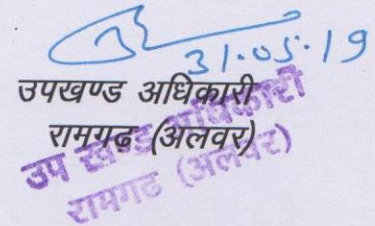 31.05.19
उपखण्ड अधिकारी
रामगढ (अलवर)
उप खण्ड अधिकारी
रामगढ (अलवर)